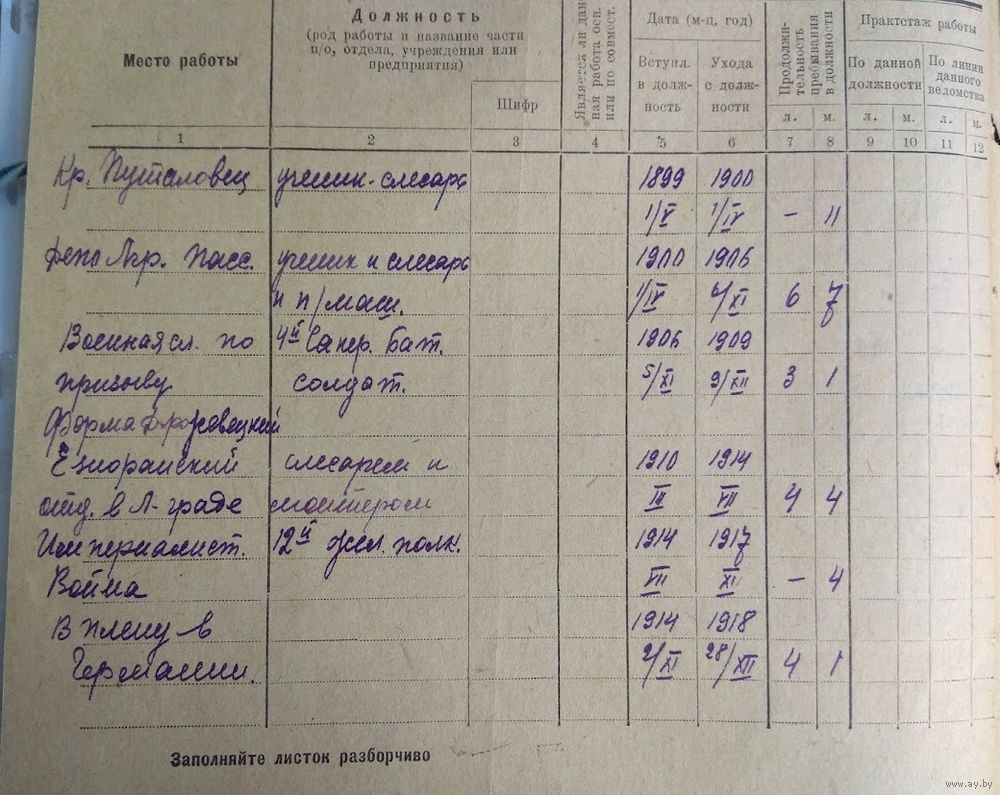 Место работы
Должность
(род работы и название части
п/о, отдела, учреждения или
предприятия)
Шифр
Является ли дан-
ная работа осн.
или по совмест.
Дата (м-ц, год)
Вступл. в долж-ность
Ухода с долж-ности
Продолжи-
тельность
пребывания
в должности
л. м.
Практстаж работы
По данной должности
По линии данного ведомства
л. м. л. м.
1 2 3 4 5 6 7 8 9 10 11 12
Кр. Путиловец ученик-слесарь 1899 1900
1/V 1/IV – 11
Депо Лгр. Пасс. ученик и слесарь 1900 1906
и п/маш. 1/IV 6/XI 6 7
Военная сл. по 4й Сапер. Бат. 1906 1909
призыву солдат. 5/XI 9/XII 3 1
Фирма
слесарем и 1910 1914
отд. в Л-граде монтером III VII 4 4
Империалист. 12й жел. полк. 1914 1917
Война VII XI – 4
В плену в 1914 1918
Германии. 2/XI 28/XII 4 1
Заполняйте листок разборчиво
www.ay.by